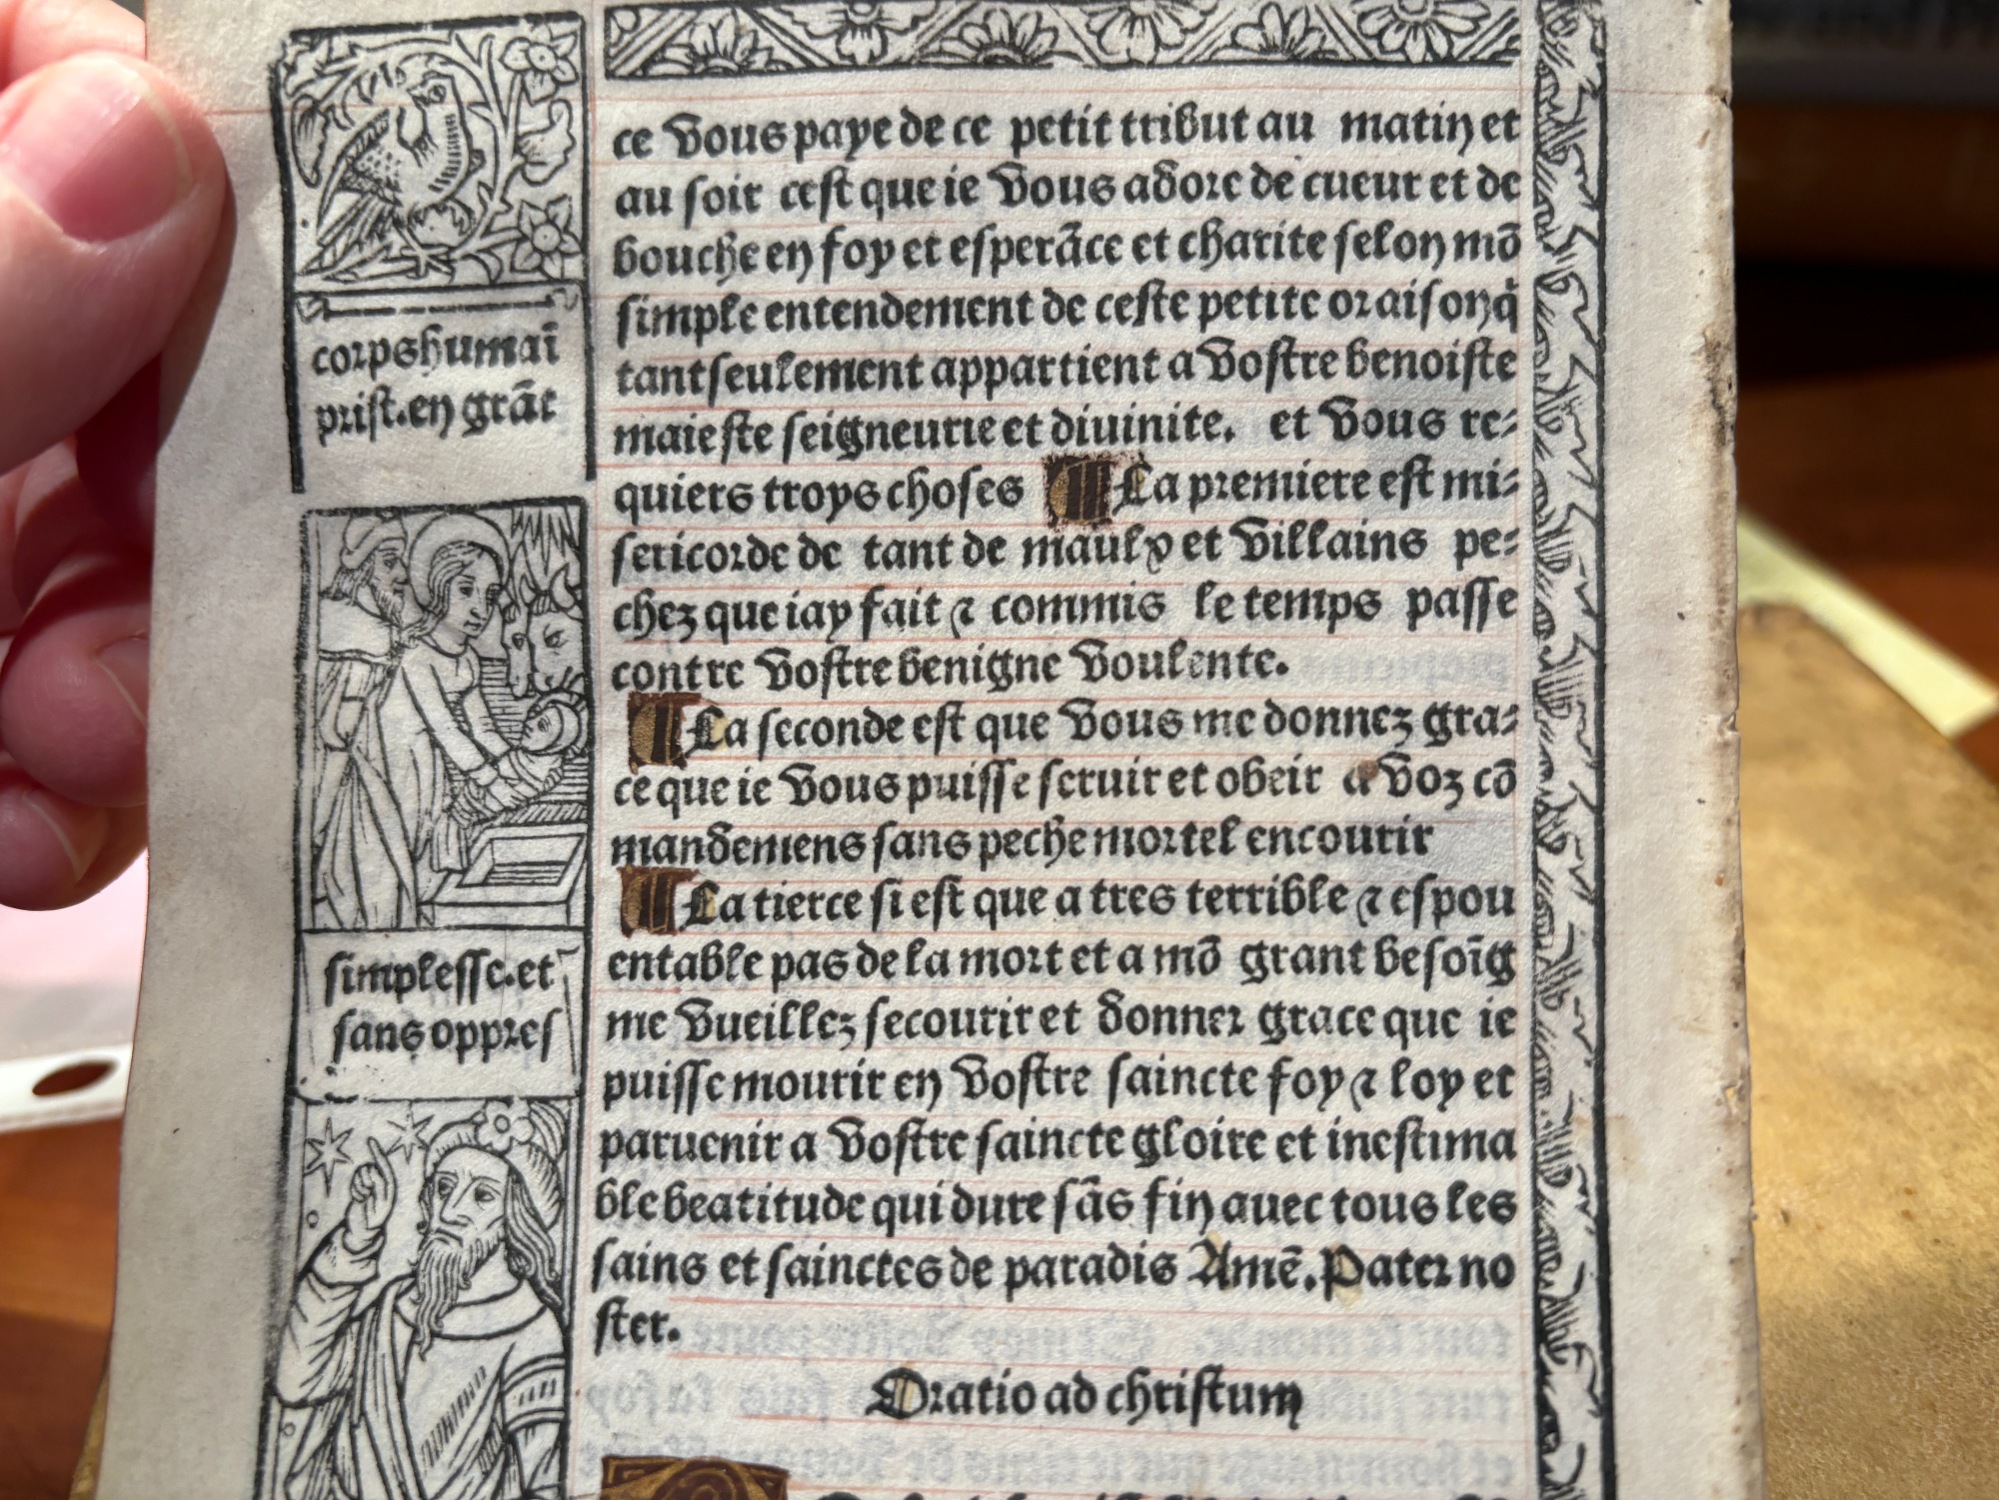 corpshumaĩ
prist.en grãt
simplesse.et
sans oppres
ce vous paye de ce petit tribut au matin et
au soir cest que ie vous adore de cueur et de
bouche en foy et esperãce et charite selon mõ
simple entendement de ceste petite oraison q̃
tantseulement appartient a vostre benoiste
maieste seigneurie et diuinite. et vous re-
quiers troys choses ¶ La premiere est mi-
sericorde de tant de maulx et villains pe-
chez que iay fait ⁊ commis le temps passe
contre vostre benigne voulente.
¶ La seconde est que vous me donnez gra-
ce que ie vous puisse seruir et obeir a voz cõ
mandemens sans peche mortel encourir
¶ La tierce si est que a tres terrible ⁊ espou
entable pas de la mort et a mõ grant besoĩg
me vueillez secourir et donner grace que ie
puisse mourir en vostre saincte foy ⁊ loy et
paruenir a vostre saincte gloire et inestima
ble beatitude qui dure sãs fin auec tous les
sains et sainctes de paradis Amẽ. Pater no
ster.
Oratio ad christum